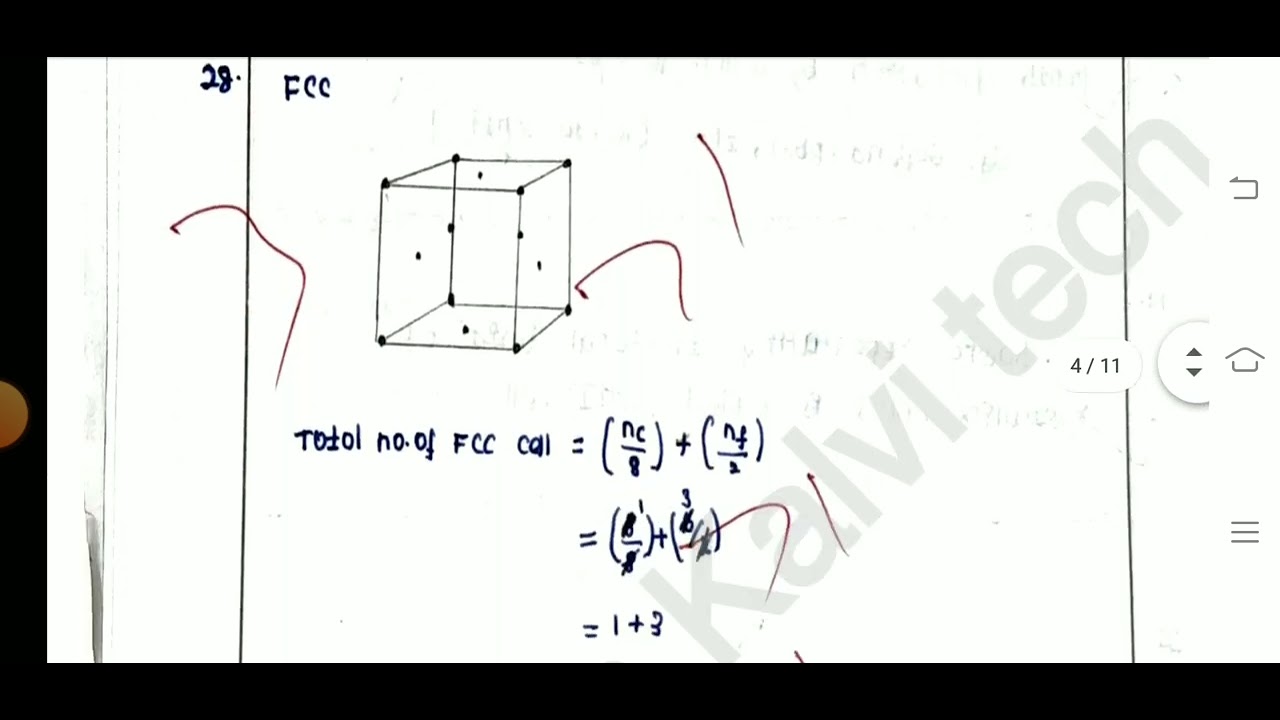 28.
FCC
Total no. of FCC call = (nc/8) + (nf/2)
= (8/8)1 + (6/2)3
= 1 + 3
4 / 11
Kalvi tech